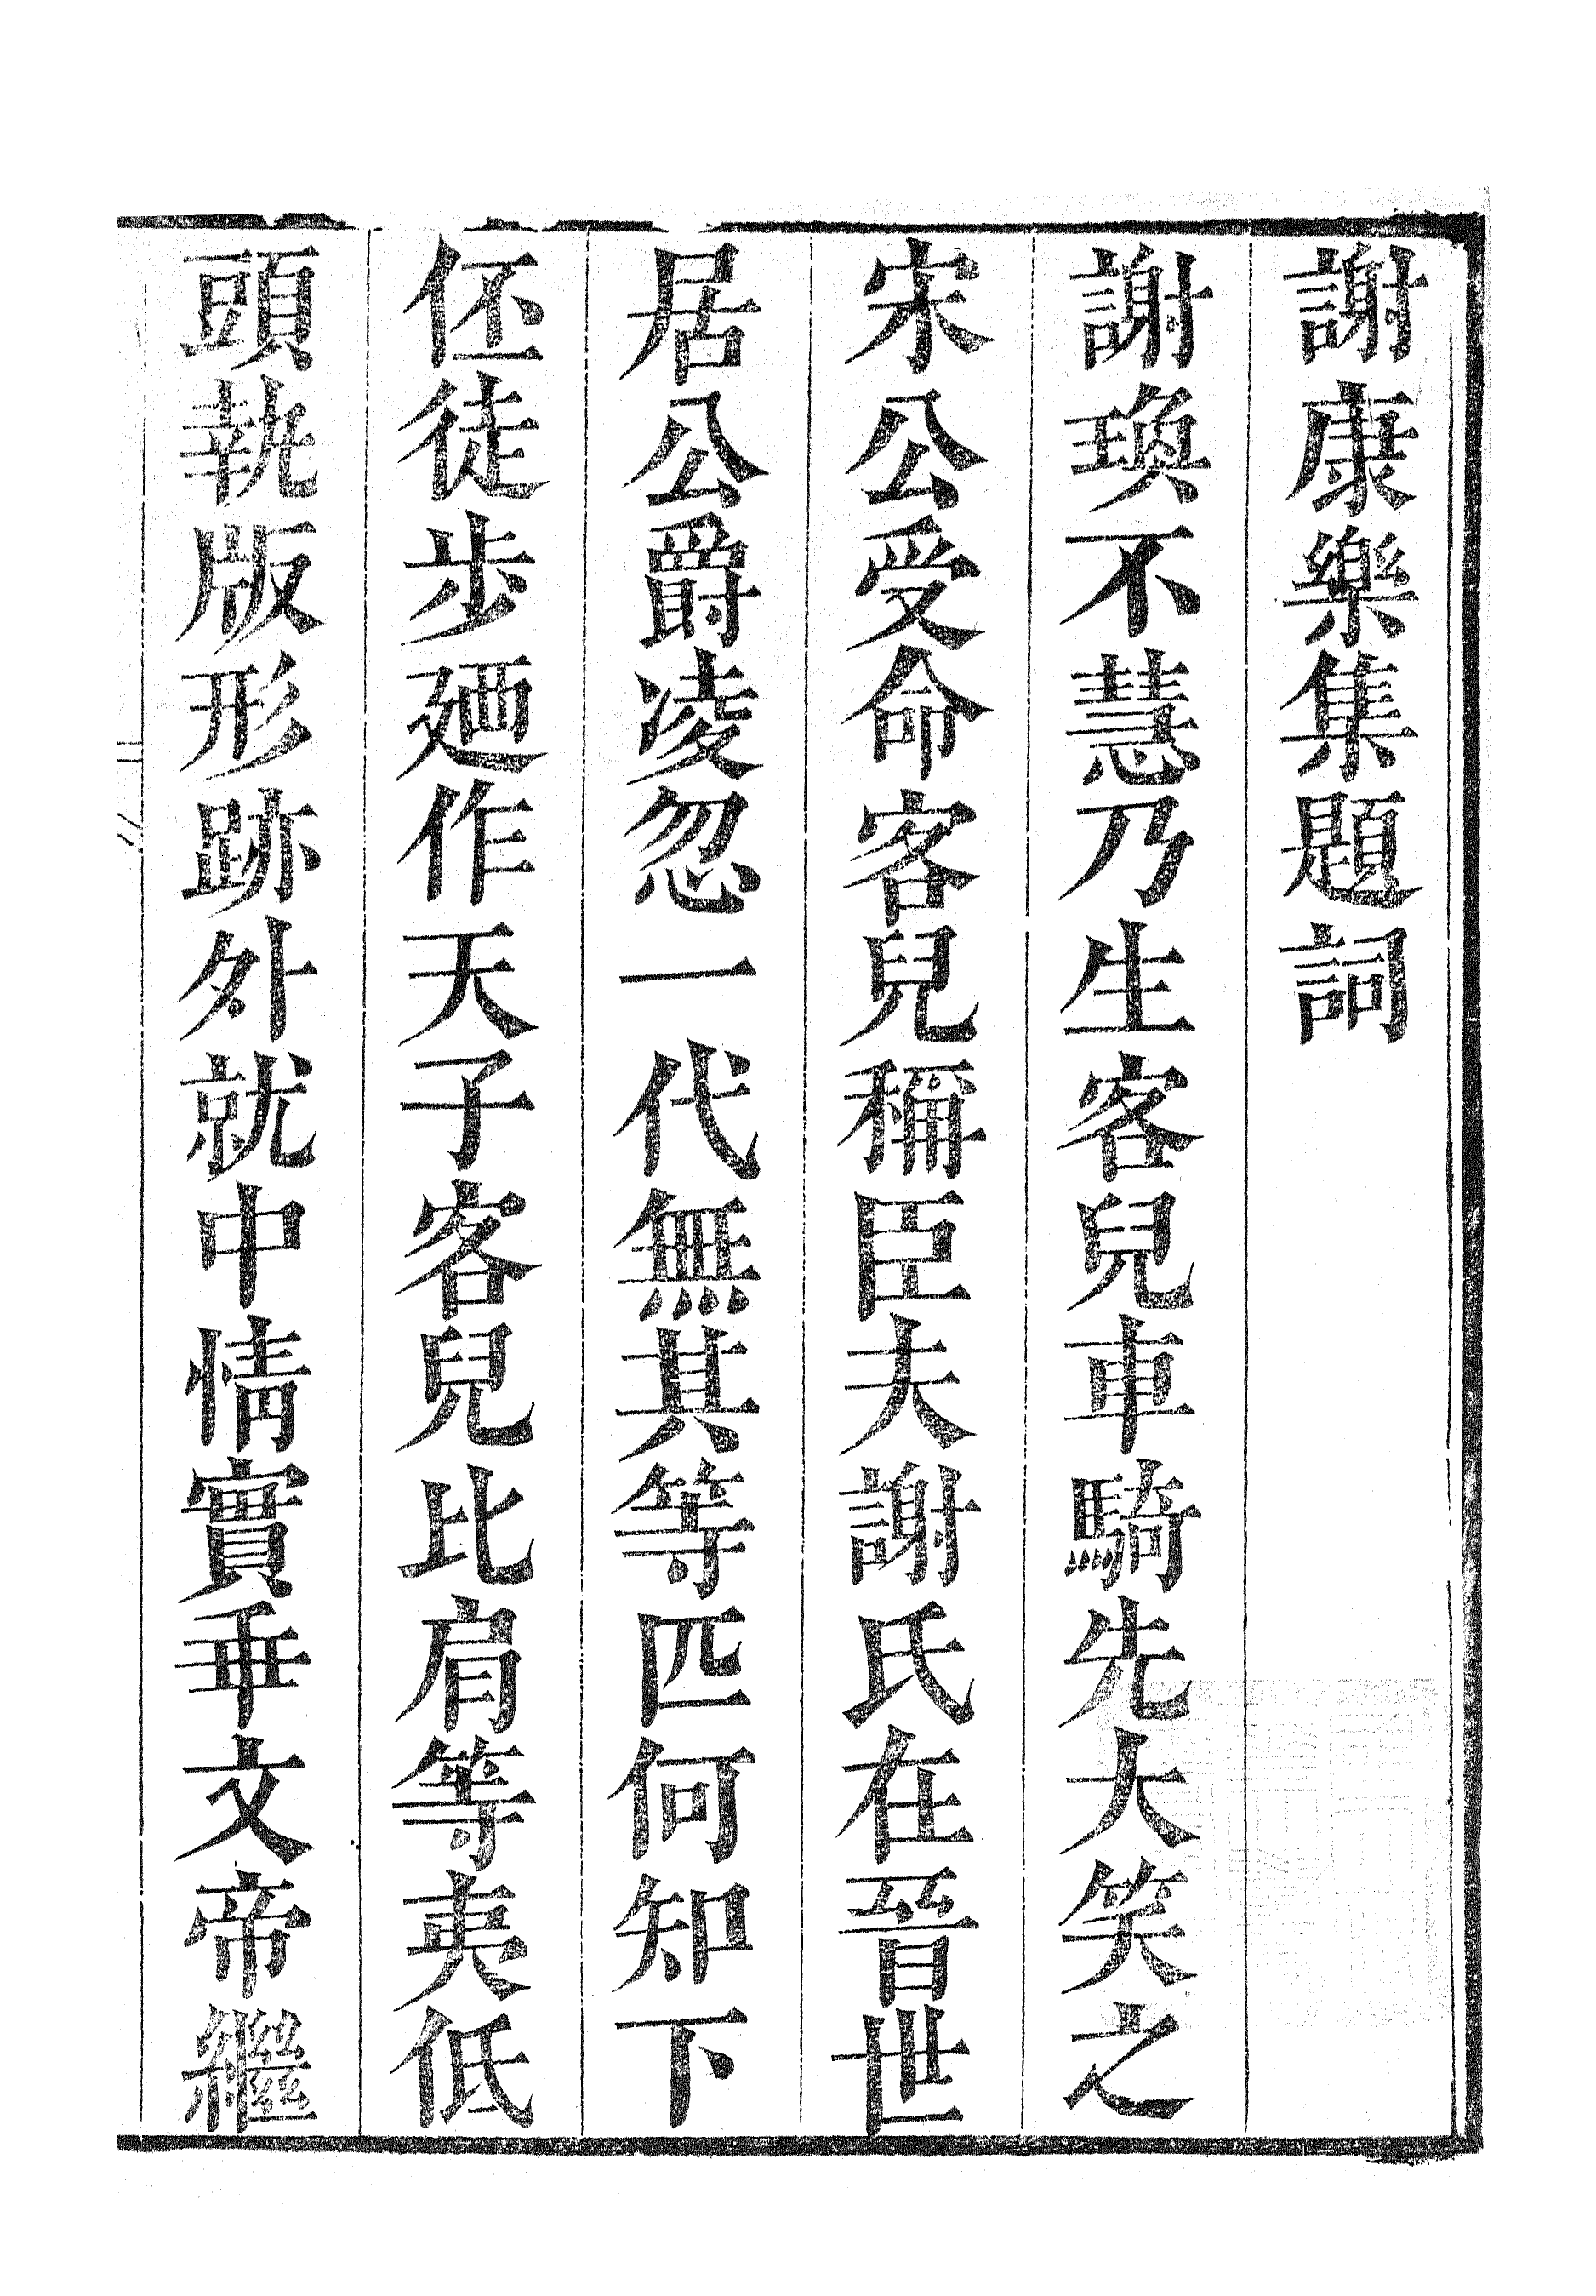 謝康樂集題詞
謝瑍不慧乃生客兒車騎先大笑之
宋公受命客兒稱臣夫謝氏在晉世
居公爵凌忽一代無其等匹何知下
伾徒步廼作天子客兒比肩等夷低
頭執版形跡外就中情實乖文帝繼